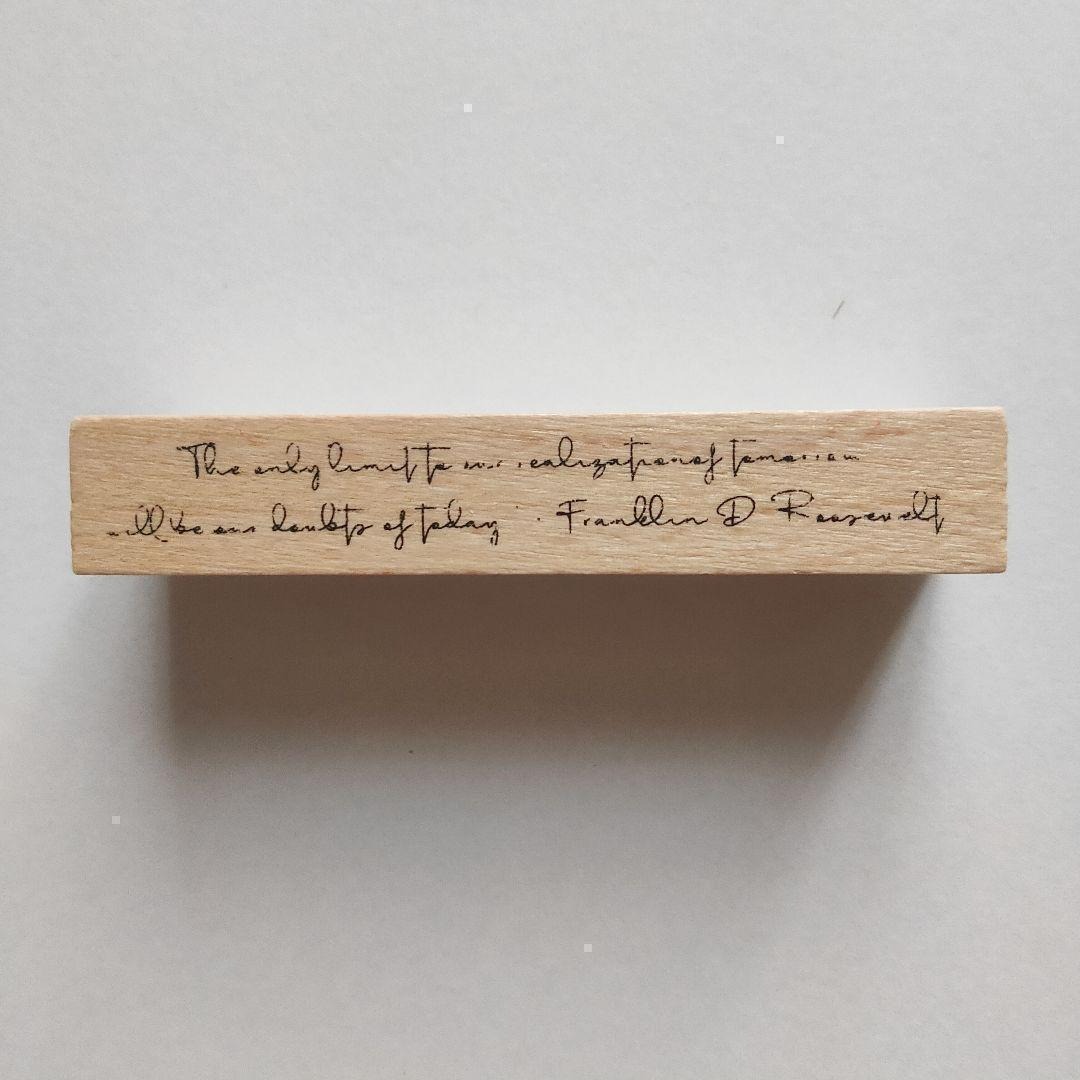 The only limit to our realization of tomorrow
will be our doubts of today - Franklin D Roosevelt